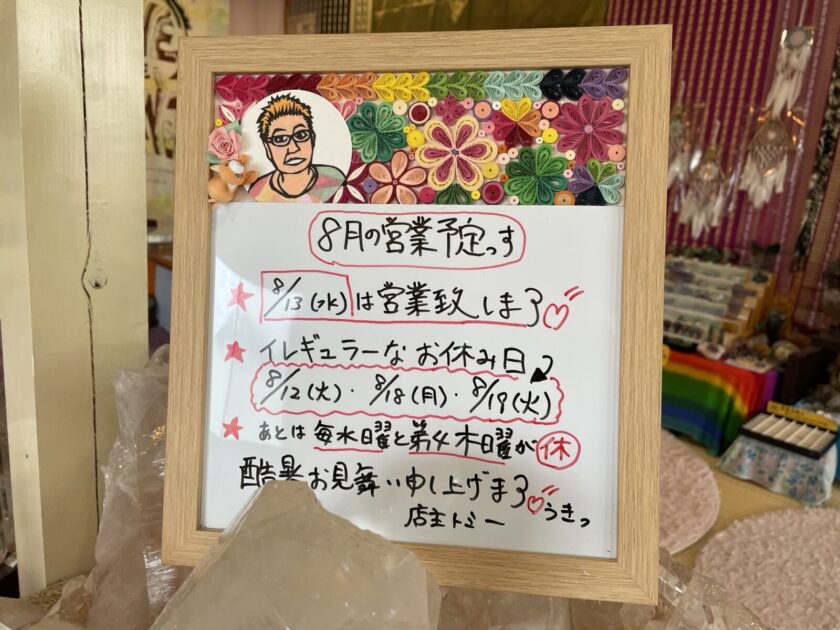 8月の営業予定っす
★ 8/13(水)は営業致しまう♡
★ イレギュラーなお休み日
8/12(火)・8/18(月)・8/19(火)
★ あとは毎水曜と第4木曜が休
酷暑お見舞い申し上げまう♡
店主トミー うきっ